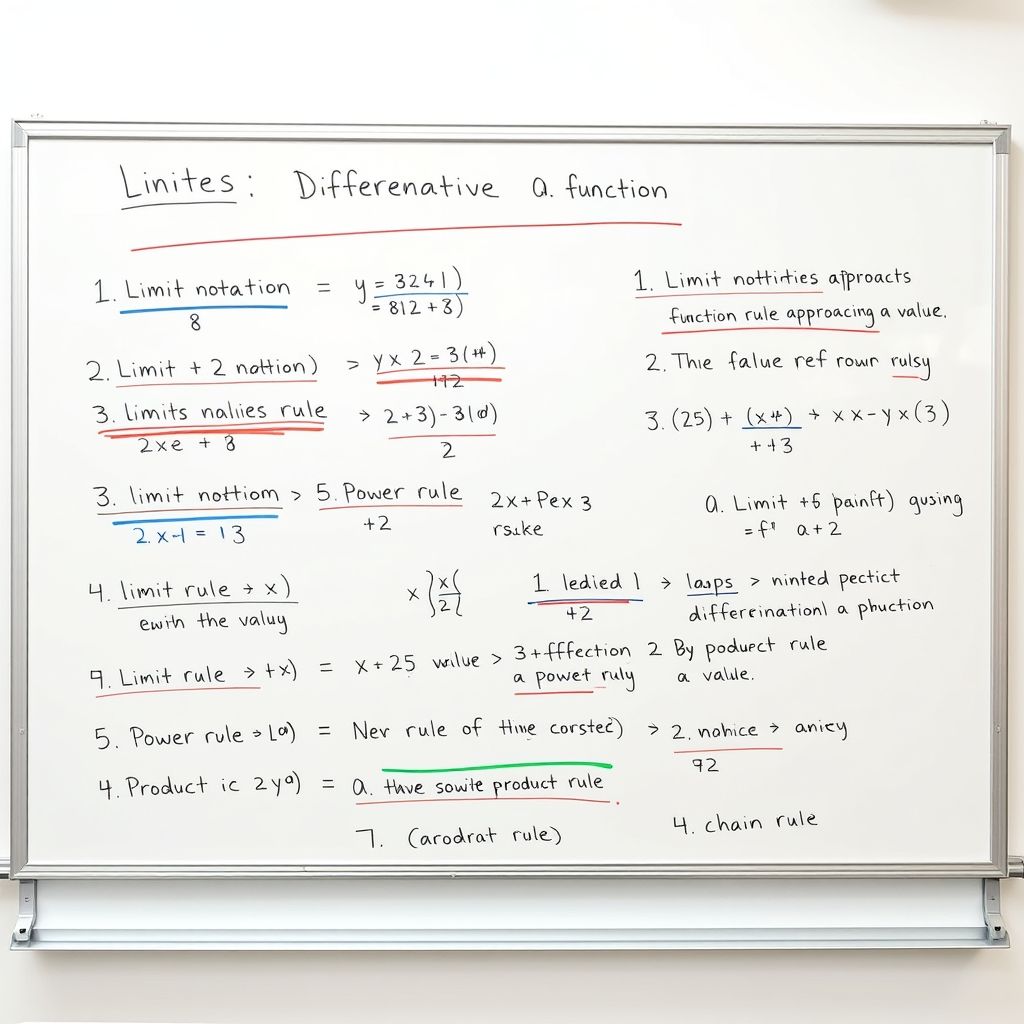 Linites: Differenative a. function
1. Limit notation = y = 3241)
= 812 + 3)
8
2. Limit + 2 nattion) > y x 2 = 3(#)
112
3. limits nalies rule > 2+3) - 3(d)
2xe + 3
2
3. limit nottiom > 5. Power rule 2x + Pex 3
2. x-1 = 13
+2
rsuke
4. limit rule → x)
ewith the valuy
x ) x (
2
9. Limit rule → +x) = x + 25 value > 3 +fffection 2 By poduect rule
a powet ruly a value.
5. Power rule → L(a) = Nev rule of thine corstec) > 2. nahice > aniey
92
4. Product ic 2ya) = a. thve sowite product rule
7. (arodrat rule)
4. chain rule
1. Limit nottirities afproacts
function rule approacing a value.
2. The falue ref rowr rulsy
3. (25) + (x#) + x x - y x (3)
+ +3
a. Limit +6 painft) gusing
= f' a + 2
1. ledied 1 > lasps > ninted pectict
+2
differcinationl a phuction